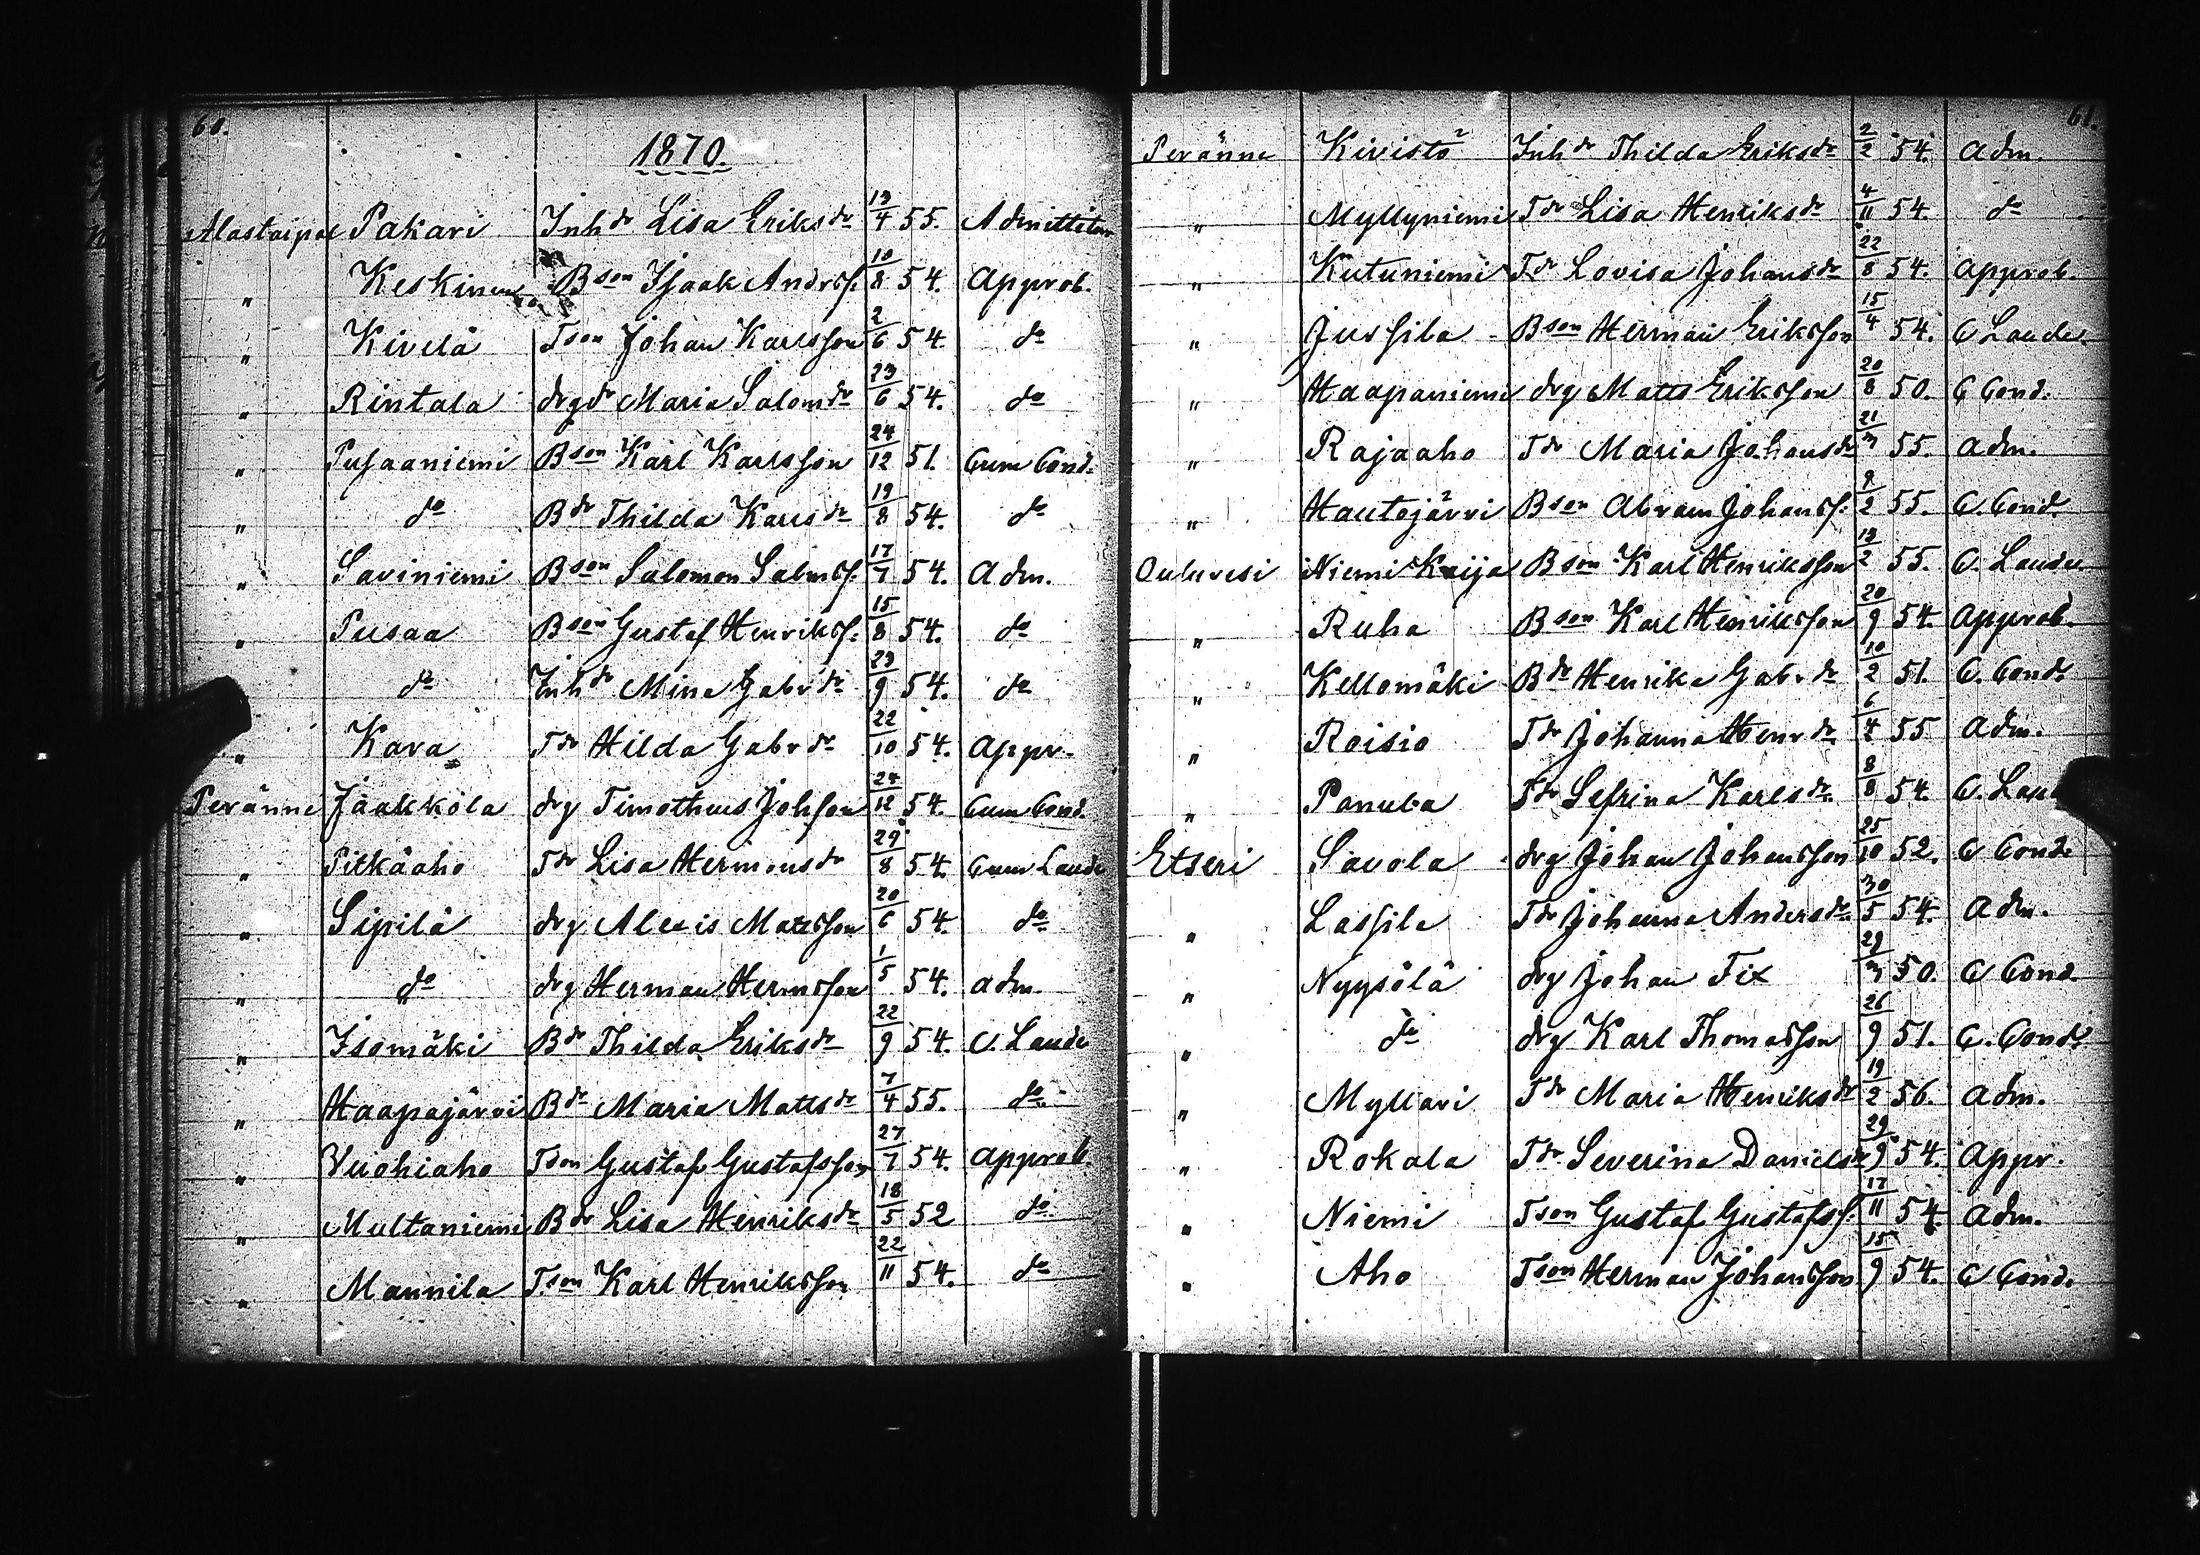 60.
1870.
Alastaipal Pakari Inhdr Lisa Eriksdr 13/4 55. Admittitur
" Keskinen Bson Isaak Andrsf. 10/8 54. Approb.
" Kivelä Tson Johan Karlsson 2/6 54 do
" Rintala drgdr Maria Salomdr 23/6 54. do
" Pusaaniemi Bson Karl Karlsson 24/12 51. Cum Cond.
" do Bdr Thilda Karlsdr 19/8 54. do
" Saviniemi Bson Salomon Salmsf. 17/7 54. Adm.
" Pusaa Bson Gustaf Henriksf. 15/8 54. do
" do Inhdr Mina Gabrdr 23/9 54. do
" Kara Tdr Hilda Gabrdr 22/10 54. Appr.
Peränne Jaakkola drg Timotheus Johsson 24/12 54. Cum Cond.
" Pitkäaho Tdr Lisa Hermansdr 29/8 54. Cum Laude
" Sipilä drg Alexis Mattsson 20/6 54. do
" do drg Herman Hermsson 1/5 54. adm.
" Isomäki Bdr Thilda Eriksdr 22/9 54. C. Laude
" Haapajärvi Bdr Maria Mattsdr 7/4 55. do
" Vuohiaho Tson Gustaf Gustafsson 27/7 54. Approb.
" Multaniemi Bdr Lisa Henriksdr 18/5 52 do
" Mannila Tson Karl Henriksson 22/11 54. do
61.
Peränne Kivistö Inhdr Thilda Eriksdr 2/2 54. Adm.
" Myllyniemi Tdr Lisa Henriksdr 4/11 54. do
" Kutuniemi Tdr Lovisa Johansdr 22/8 54. Approb.
" Jussila Bson Herman Eriksson 15/4 54. C Laude.
" Haapaniemi drg Matts Eriksson 20/8 50. C Cond.
" Rajaaho Tdr Maria Johansdr 21/3 55. Adm.
" Hautojärvi Bson Abram Johansf. 9/2 55. C. Cond.
Ouluvesi Niemi Kaija Bson Karl Henriksson 13/2 55. C. Laude
" Ruha Bson Karl Henriksson 20/9 54 Approb.
" Kellomäki Bdr Henrika Gabrdr 10/2 51. C. Cond.
" Roisio Tdr Johanna Henrdr 6/4 55 Adm.
" Panula Tdr Sefrina Karlsdr 8/8 54. C.
Etseri Savola drg Johan Johansson 25/10 52. C Cond.
" Lassila Tdr Johanna Andersdr 30/5 54. Adm.
" Nyysölä drg Johan Fix 29/3 50. C Cond.
" do drg Karl Thomasson 26/9 51. C. Cond.
" Myllari Tdr Maria Henriksdr 19/2 56. Adm.
" Rokala Tdr Severina Danielsdr 29/9 54. Appr.
" Niemi Tson Gustaf Gustafsf. 17/11 54. Adm.
" Aho Tson Herman Johansson 15/9 54. C Cond.